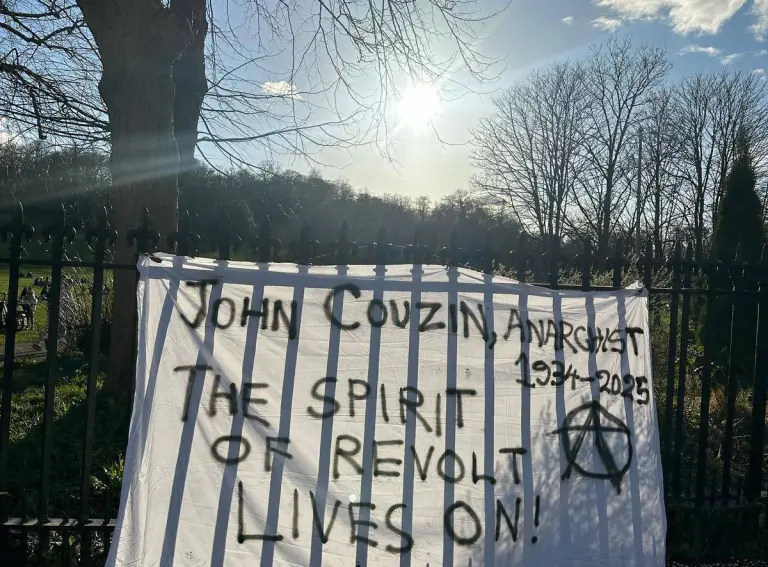 JOHN COUZIN, ANARCHIST
1934-2025
THE SPIRIT
OF REVOLT
LIVES ON!